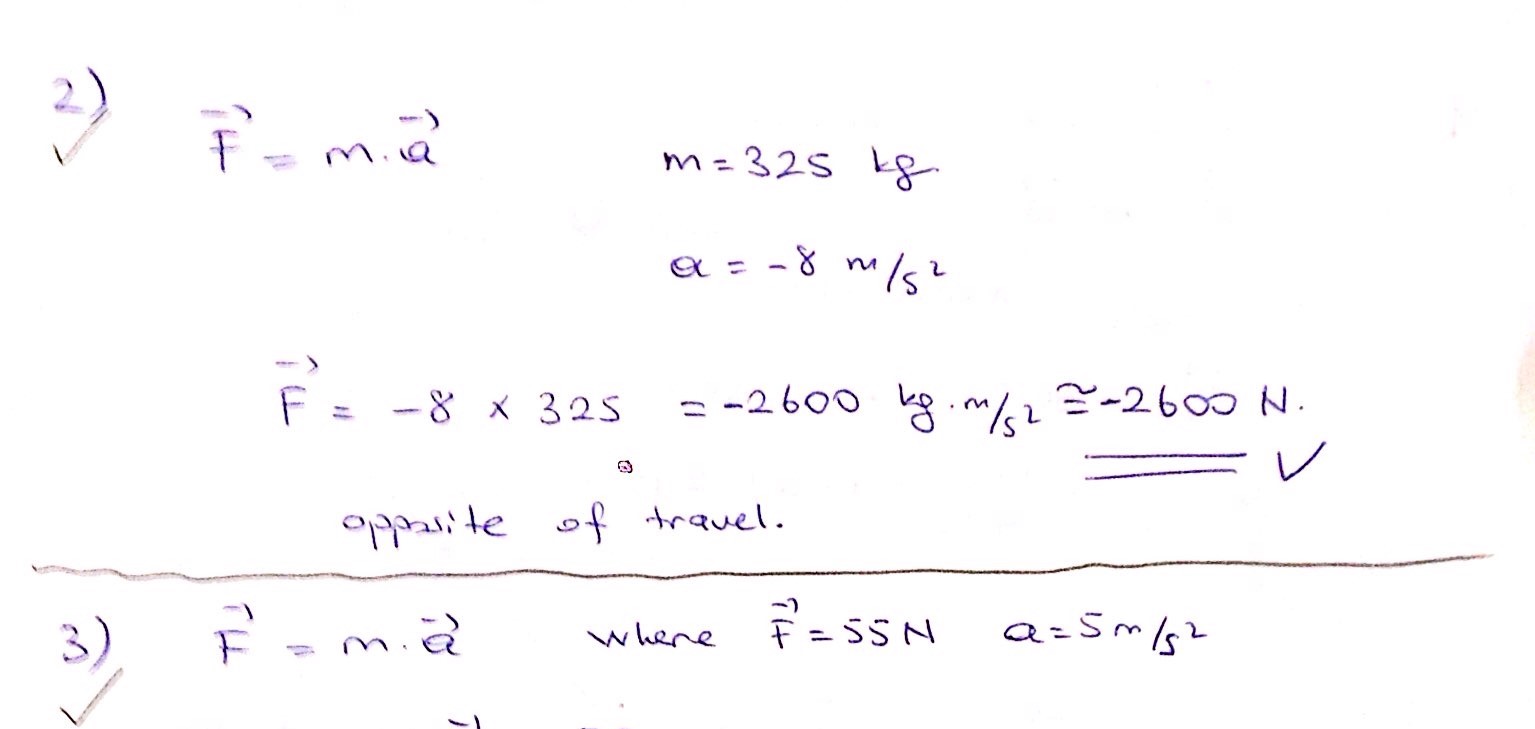 2) F⃗ = m.a⃗ m=325 kg
a = -8 m/s²
F⃗ = -8 x 325 = -2600 kg.m/s² ≅ -2600 N. ✓
opposite of travel.
3) F⃗ = m.a⃗ where F⃗ = 55N a=5m/s²